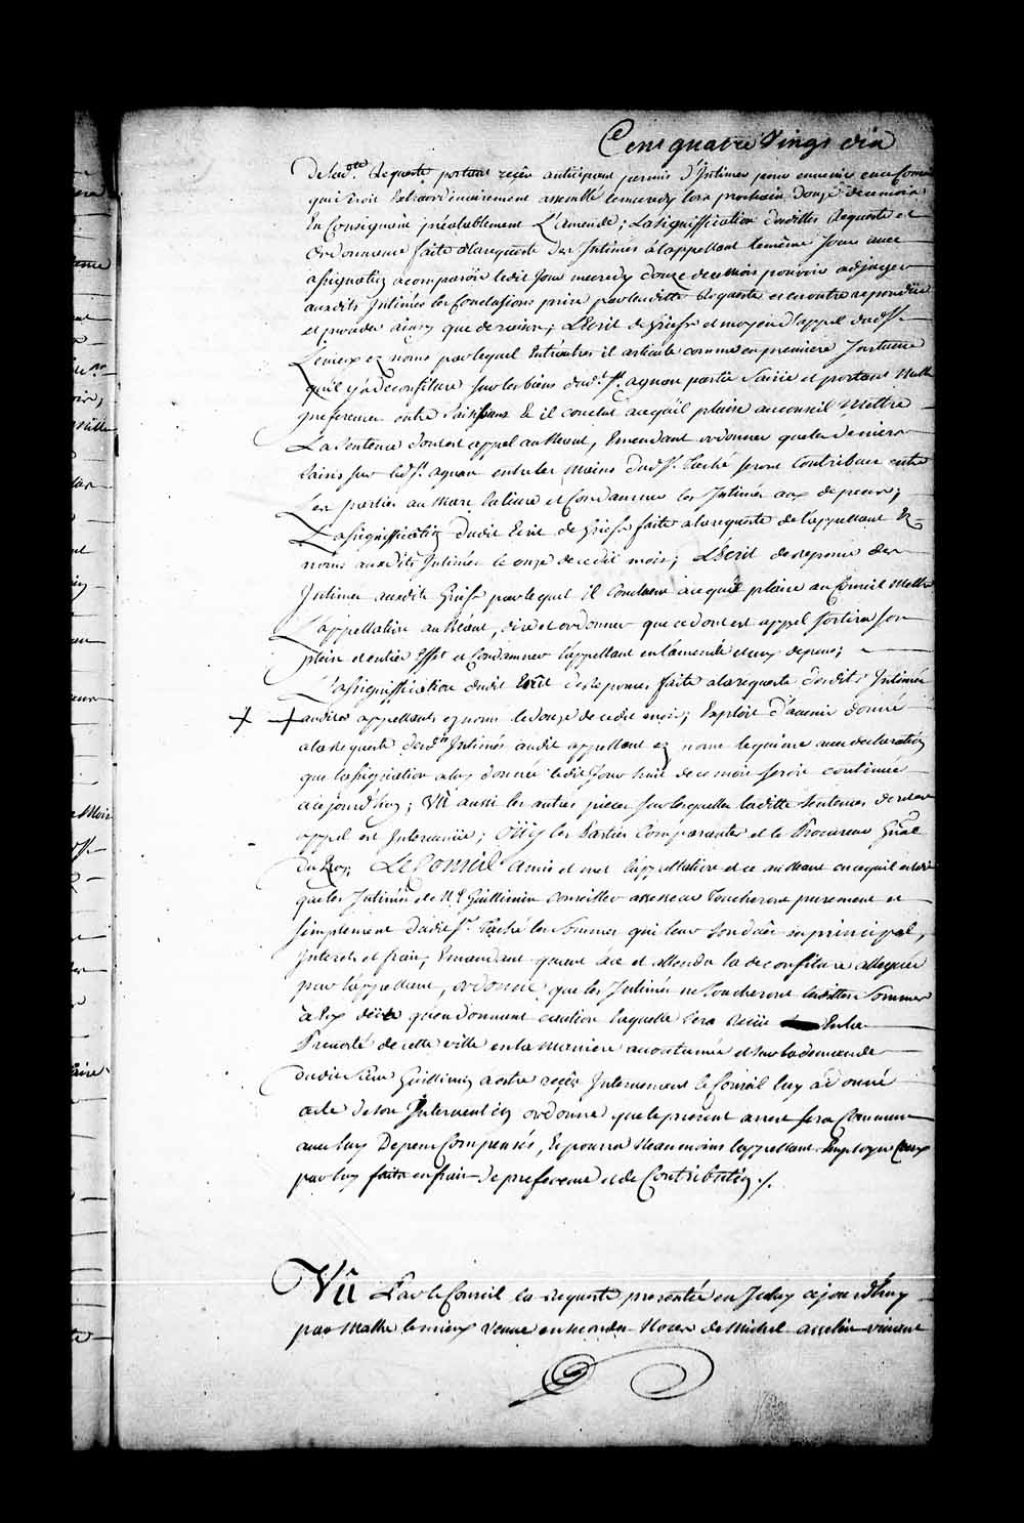 Cent quatre Vings dix
De lad. Requeste portant reçûs anticipant permis d'Intimer pour en venir en ce Conseil
qui seroit Extraordinairement assemblé le mercredy lors prochain Douze decembre
En Consignant préalablement L'amende; La signiffication desdittes Requeste et
Ordonnance faite a la requeste Des Intimés à l'appellant le même Jour avec
assignation a comparoir ledit Jour mercredy douze dudit mois pour voir adjuger
auxdits Intimés les Conclusions prises par leurditte Requeste et en outre repondre
et proceder ainsy que de raison; L'Ecrit de Griefs et moyens d'appel dud. Sr.
Lemieux ez noms par lequel Entr'autres il articule comme en premiere Instance
qu'il y a deconfiture sur les biens dud. Sr. agnan partie Saisie et portant Nulle
preference entre Saisissans & il conclut a ce qu'il plaise au conseil Mettre
La Sentence dont est appel au Néant, Emendant ordonner que les deniers
saisis sur led. Sr. agnan entre les Mains dud. Sr. Taché seront Contribués entre
Les parties au Marc la livre et Condamner les Intimés aux depens;
La signiffication dudit Ecrit de Griefs faite a la requeste de l'appellant Ez
noms auxdits Intimés le onze de cedit mois; L'Ecrit de reponse des
Intimés auxdits Griefs par lequel Il Concluent a ce qu'il plaise au Conseil Mettre
L'appellation au Néant, dire et ordonner que ce dont est appel Sortira son
plein et entier Effet et Condamner l'appellant en l'amende et aux depens;
La signiffication dudit Ecrit de Reponses faite a la requeste desdits Intimés
audit appellant ez noms le douze de cedit mois; Exploit d'avenir donné
a la Requeste desdits Intimés audit appellant ez noms le quinze avec declaration
que l'assignation a luy donnée ledit Jour huit de ce mois seroit continuée
a cejourd'huy; Vû aussi les autres pieces sur lesquelles laditte Sentence dont est
appel est Intervenüe; Oüy les Parties Comparantes et le Procureur Gnal
du Roy; Le Conseil a mis et met l'appellation et ce au Néant en ce qu'il est dit
que les Intimés et Me. Guillimin Conseiller assesseur Toucheront purement et
simplement dudit Sr. Taché les Sommes qui leur sont dües en principal,
Interets et frais, Emendant quant à ce et attendu la deconfiture alleguée
par l'appellant, ordonne que les Intimés ne Toucheront lesdittes Sommes
à Eux düés qu'en donnant caution laquelle sera Reçüe En la
Prevosté de cette ville en la Maniere accoutumée et sur la demande
dudit Sieur Guillimin a estre reçû Intervenant le Conseil luy a donné
acte de son Intervention ordonne que le present arrest sera Commun
avec luy Depens Compensés, & pourra Neanmoins l'appellant Employer Ceux
par luy faits en frais de preference et de Contribution ./.
Vû Par le Conseil la Requeste presentée en Iceluy cejourd'huy
par Mathe lemieux Veuve en secondes Noces de Michel asselin vivant